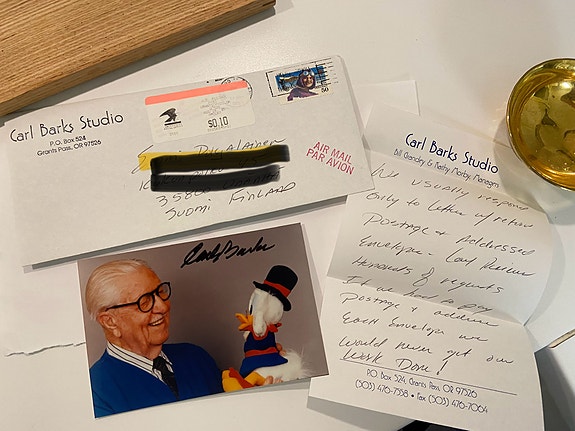 Carl Barks Studio
P.O. Box 524
Grants Pass, OR 97526
$0.10
50
AIR MAIL
PAR AVION
SUOMI FINLAND
Carl Barks
Carl Barks Studio
Bill Grandey & Kathy Morby, Managers
We usually respond
only to letters w/return
Postage & Addressed
Envelope - Carl Receives
Hundreds of requests
If we had to pay
Postage & address
Each Envelope we
Would never get our
Work Done!
P.O. Box 524, Grants Pass, OR 97526
(503) 476-7558 • Fax (503) 476-7064